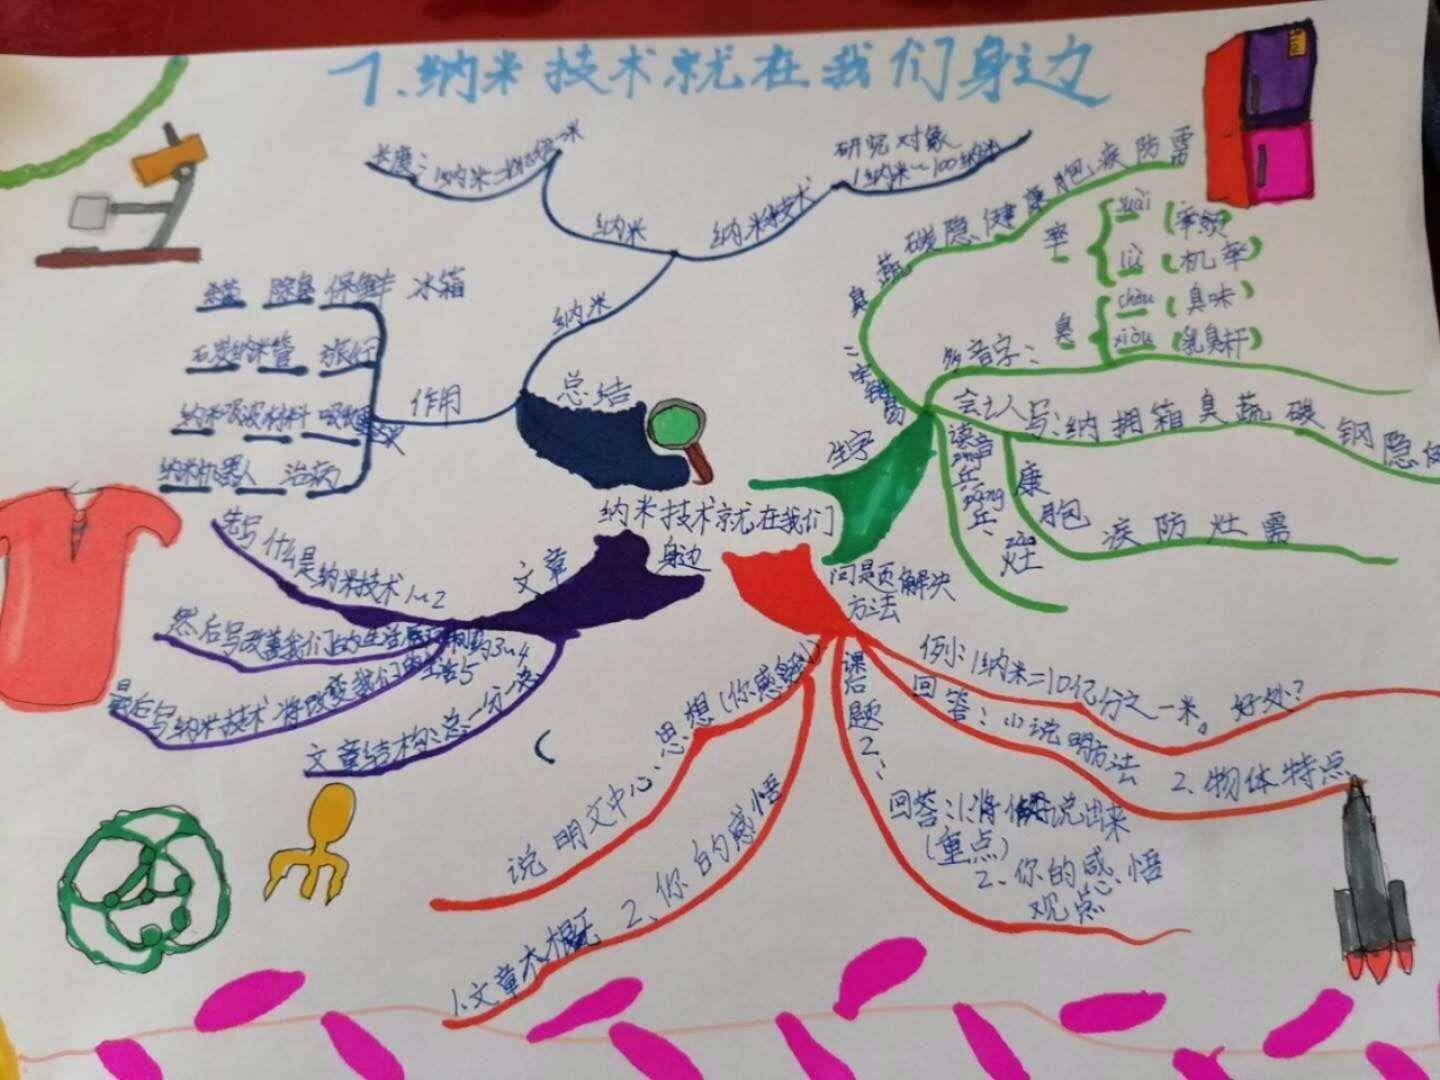 7.纳米技术就在我们身边
研究对象
1纳米~100纳米
纳米
纳米技术
纳米
总结
作用
杀菌 除臭 保鲜 冰箱
纳米管
纳米吸波材料
纳米机器人 治病
臭 蔬 碳 隐 健 康 胞 疾 防 需
率
shuài (率领)
lǜ (机率)
臭
chòu (臭味)
xiù (乳臭
多音字:
会写:纳 拥 箱 臭 蔬 碳 钢 隐 健
康 胞 疾 防 灶 需
读音
乒 pīng
乓 pāng
灶 zào
生字
纳米技术就在我们
身边
文章
先写什么是纳米技术1~2
然后写改善我们的生活 3~4
最后写纳米技术将改变我们的生活5
文章结构:总一分一总
问题解决
方法
例:1纳米=10亿分之一米。好处?
回答:(1)说明方法 2、物体特点
课后题2:
回答:1:将 说出来
(重点)
2、你的感悟
观点
说明文中心、思想(你感悟)
1.文章大概 2、你的感悟